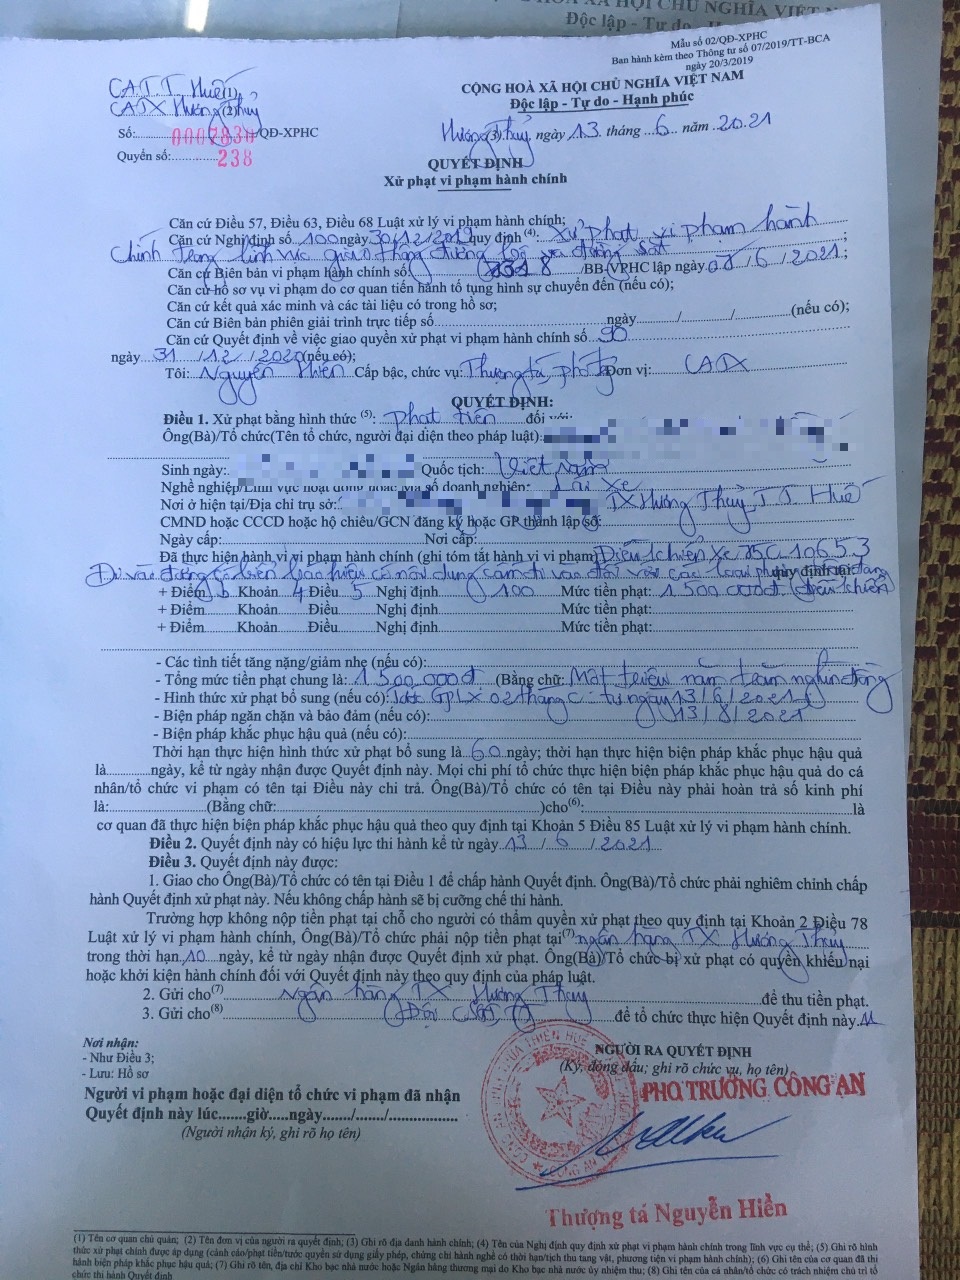 XÃ HỘI CHỦ NGHĨA VIỆT
Độc lập - Tự do - H
Mẫu số 02/QĐ-XPHC
Ban hành kèm theo Thông tư số 07/2019/TT-BCA
ngày 20/3/2019
CA.T.T Huế(1)
CATX Hương(2)Thủy
Số: 0007830/QĐ-XPHC
Quyển số: 238
CỘNG HOÀ XÃ HỘI CHỦ NGHĨA VIỆT NAM
Độc lập - Tự do - Hạnh phúc
Hương(3)Thủy, ngày 13 tháng 6 năm 2021
QUYẾT ĐỊNH
Xử phạt vi phạm hành chính
Căn cứ Điều 57, Điều 63, Điều 68 Luật xử lý vi phạm hành chính;
Căn cứ Nghị định số 100 ngày 30/12/2019 quy định (4): Xử phạt vi phạm hành
chính trong lĩnh vực giao thông đường bộ và đường sắt;
Căn cứ Biên bản vi phạm hành chính số /BB-VPHC lập ngày 08/6/2021;
Căn cứ hồ sơ vụ vi phạm do cơ quan tiến hành tố tụng hình sự chuyển đến (nếu có);
Căn cứ kết quả xác minh và các tài liệu có trong hồ sơ;
Căn cứ Biên bản phiên giải trình trực tiếp số ngày / / (nếu có);
Căn cứ Quyết định về việc giao quyền xử phạt vi phạm hành chính số 90
ngày 31/12/2020 (nếu có);
Tôi: Nguyễn Hiền Cấp bậc, chức vụ: Thượng tá, phó Đơn vị: CATX
QUYẾT ĐỊNH:
Điều 1. Xử phạt bằng hình thức (5): phạt tiền đối với:
Ông(Bà)/Tổ chức(Tên tổ chức, người đại diện theo pháp luật):
Sinh ngày: Quốc tịch: Việt Nam
Nghề nghiệp/Lĩnh vực hoạt động hoặc Mã số doanh nghiệp: Lái xe
Nơi ở hiện tại/Địa chỉ trụ sở: TX Hương Thủy, T.T Huế
CMND hoặc CCCD hoặc hộ chiếu/GCN đăng ký hoặc GP thành lập số:
Ngày cấp: Nơi cấp:
Đã thực hiện hành vi vi phạm hành chính (ghi tóm tắt hành vi vi phạm): Điều khiển xe 75C 10653
Đi vào đường có biển báo hiệu có nội dung cấm đi vào đối với các loại phương tiện đang quy định tại:
+ Điểm b Khoản 4 Điều 5 Nghị định 100 Mức tiền phạt: 1.500.000đ (điều khiển
+ Điểm Khoản Điều Nghị định Mức tiền phạt:
+ Điểm Khoản Điều Nghị định Mức tiền phạt:
- Các tình tiết tăng nặng/giảm nhẹ (nếu có):
- Tổng mức tiền phạt chung là: 1.500.000đ (Bằng chữ: Một triệu năm trăm nghìn đồng
- Hình thức xử phạt bổ sung (nếu có): GPLX 02 tháng từ ngày 13/6/2021
- Biện pháp ngăn chặn và bảo đảm (nếu có): 13/8/2021
- Biện pháp khắc phục hậu quả (nếu có):
Thời hạn thực hiện hình thức xử phạt bổ sung là 60 ngày; thời hạn thực hiện biện pháp khắc phục hậu quả
là ngày, kể từ ngày nhận được Quyết định này. Mọi chi phí tổ chức thực hiện biện pháp khắc phục hậu quả do cá
nhân/tổ chức vi phạm có tên tại Điều này chi trả. Ông(Bà)/Tổ chức có tên tại Điều này phải hoàn trả số kinh phí
là: (Bằng chữ: )cho(6): là
cơ quan đã thực hiện biện pháp khắc phục hậu quả theo quy định tại Khoản 5 Điều 85 Luật xử lý vi phạm hành chính.
Điều 2. Quyết định này có hiệu lực thi hành kể từ ngày 13/6/2021
Điều 3. Quyết định này được:
1. Giao cho Ông(Bà)/Tổ chức có tên tại Điều 1 để chấp hành Quyết định. Ông(Bà)/Tổ chức phải nghiêm chỉnh chấp
hành Quyết định xử phạt này. Nếu không chấp hành sẽ bị cưỡng chế thi hành.
Trường hợp không nộp tiền phạt tại chỗ cho người có thẩm quyền xử phạt theo quy định tại Khoản 2 Điều 78
Luật xử lý vi phạm hành chính, Ông(Bà)/Tổ chức phải nộp tiền phạt tại(7) ngân hàng TX Hương Thủy
trong thời hạn 10 ngày, kể từ ngày nhận được Quyết định xử phạt. Ông(Bà)/Tổ chức bị xử phạt có quyền khiếu nại
hoặc khởi kiện hành chính đối với Quyết định này theo quy định của pháp luật.
2. Gửi cho(7) Ngân hàng TX Hương Thủy để thu tiền phạt.
3. Gửi cho(8) Đội CSGT, TT để tổ chức thực hiện Quyết định này.
Nơi nhận:
- Như Điều 3;
- Lưu: Hồ sơ
Người vi phạm hoặc đại diện tổ chức vi phạm đã nhận
Quyết định này lúc.......giờ.....ngày......./......./.................
(Người nhận ký, ghi rõ họ tên)
NGƯỜI RA QUYẾT ĐỊNH
(Ký, đóng dấu; ghi rõ chức vụ, họ tên)
PHÓ TRƯỞNG CÔNG AN
Thượng tá Nguyễn Hiền
(1) Tên cơ quan chủ quản; (2) Tên đơn vị của người ra quyết định; (3) Ghi rõ địa danh hành chính; (4) Tên của Nghị định quy định xử phạt vi phạm hành chính trong lĩnh vực cụ thể; (5) Ghi rõ hình
thức xử phạt chính được áp dụng (cảnh cáo/phạt tiền/tước quyền sử dụng giấy phép, chứng chỉ hành nghề có thời hạn/tịch thu tang vật, phương tiện vi phạm hành chính); (6) Ghi tên của cơ quan đã thi
hành biện pháp khắc phục hậu quả; (7) Ghi rõ tên, địa chỉ Kho bạc nhà nước hoặc Ngân hàng thương mại do Kho bạc nhà nước ủy nhiệm thu; (8) Ghi tên của cá nhân/tổ chức có trách nhiệm chủ trì tổ
chức thi hành Quyết định